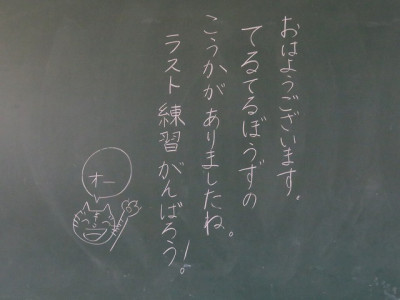 おはようございます。
てるてるぼうずの
こうかがありましたね。
ラスト練習がんばろう!
オー